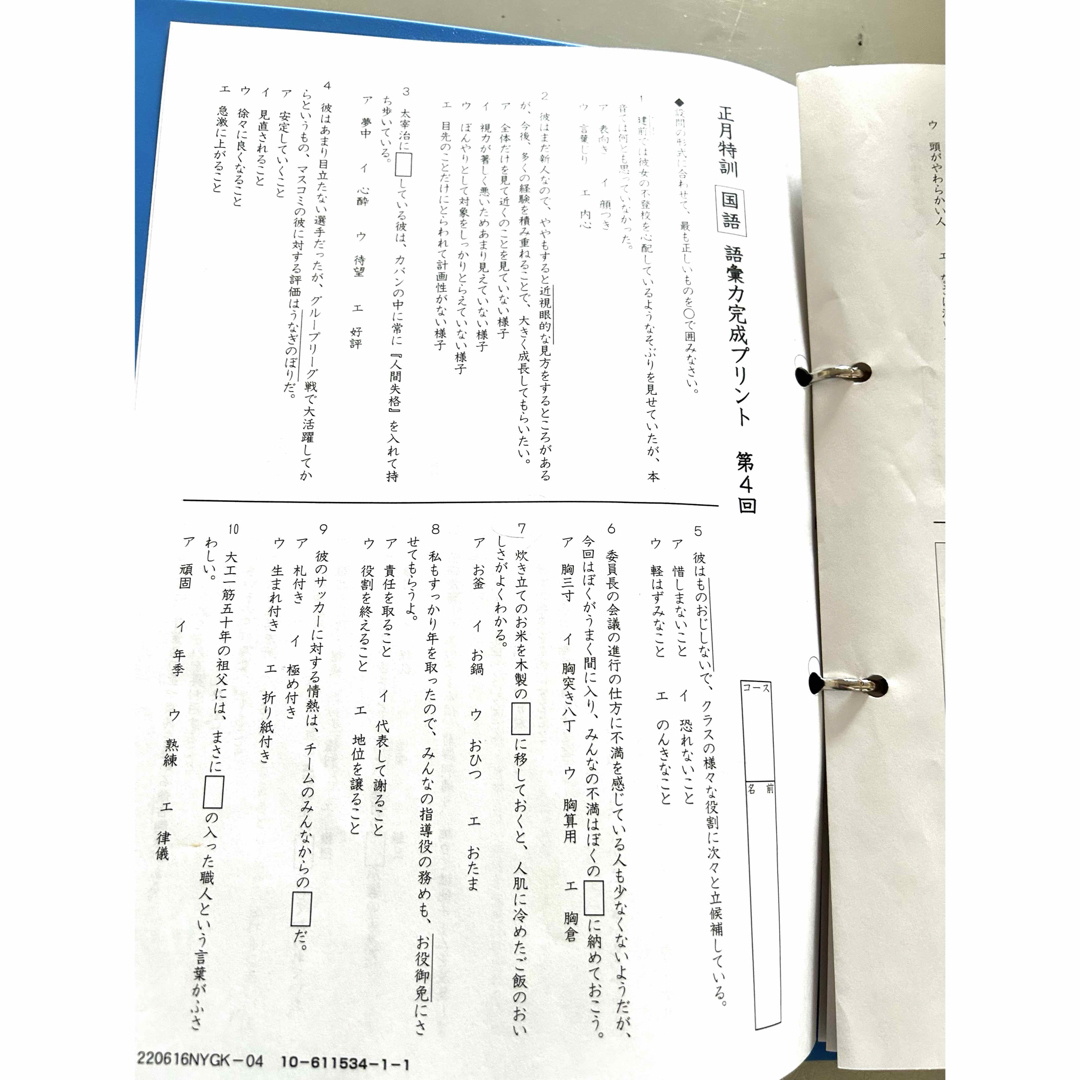 正月特訓 国語 語彙力完成プリント 第4回
◆設問の形式に合わせて、最も正しいものを○で囲みなさい。
1 建前では彼女の不登校を心配しているようなそぶりを見せていたが、本
音では何とも思っていなかった。
ア 表向き イ 顔つき
ウ 言葉じり エ 内心
2 彼はまだ新人なので、ややもすると近視眼的な見方をするところがある
が、今後、多くの経験を積み重ねることで、大きく成長してもらいたい。
ア 全体だけを見て近くのことを見ていない様子
イ 視力が著しく悪いためあまり見えていない様子
ウ ぼんやりとして対象をしっかりとらえていない様子
エ 目先のことだけにとらわれて計画性がない様子
3 太宰治に□している彼は、カバンの中に常に『人間失格』を入れて持
ち歩いている。
ア 夢中 イ 心酔 ウ 待望 エ 好評
4 彼はあまり目立たない選手だったが、グループリーグ戦で大活躍してか
らというもの、マスコミの彼に対する評価はうなぎのぼりだ。
ア 安定していくこと
イ 見直されること
ウ 徐々に良くなること
エ 急激に上がること
コース
名前
5 彼はものおじしないで、クラスの様々な役割に次々と立候補している。
ア 惜しまないこと イ 恐れないこと
ウ 軽はずみなこと エ のんきなこと
6 委員長の会議の進行の仕方に不満を感じている人も少なくないようだが、
今回はぼくがうまく間に入り、みんなの不満はぼくの□に納めておこう。
ア 胸三寸 イ 胸突き八丁 ウ 胸算用 エ 胸倉
7 炊き立てのお米を木製の□に移しておくと、人肌に冷めたご飯のおい
しさがよくわかる。
ア お釜 イ お鍋 ウ おひつ エ おたま
8 私もすっかり年を取ったので、みんなの指導役の務めも、お役御免にさ
せてもらうよ。
ア 責任を取ること イ 代表して謝ること
ウ 役割を終えること エ 地位を譲ること
9 彼のサッカーに対する情熱は、チームのみんなからの□だ。
ア 札付き イ 極め付き
ウ 生まれ付き エ 折り紙付き
10 大工一筋五十年の祖父には、まさに□の入った職人という言葉がふさ
わしい。
ア 頑固 イ 年季 ウ 熟練 エ 律儀
220616NYGK-04 10-611534-1-1
ウ 頭がやわらかい人